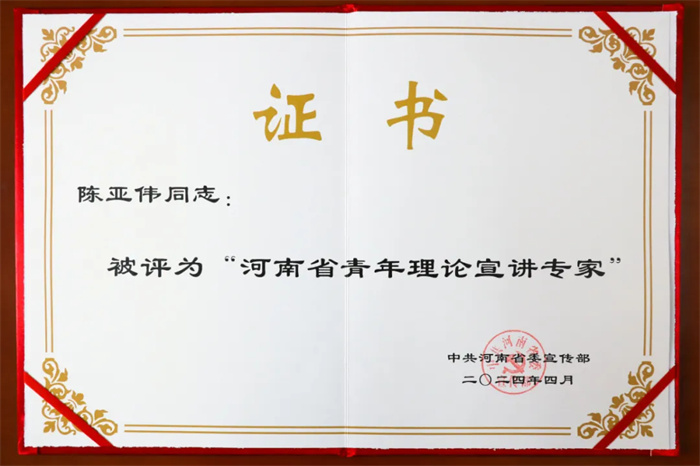 证书
陈亚伟同志：
被评为“河南省青年理论宣讲专家”
中共河南省委宣传部
二〇二四年四月